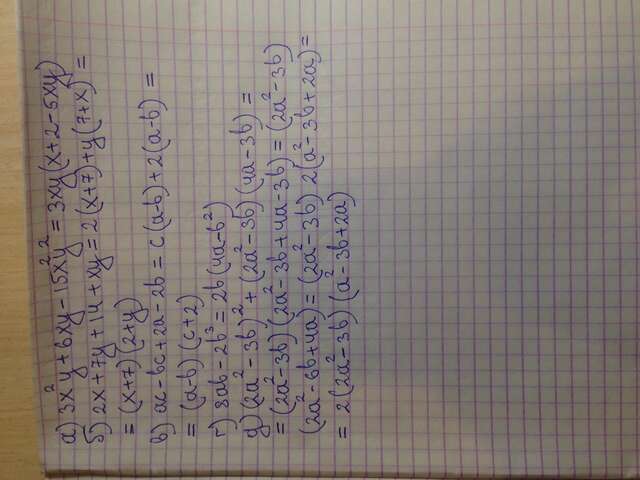 а) 3x²y + 6xy - 15x²y² = 3xy(x + 2 - 5xy)
б) 2x + 7y + 14 + xy = 2(x+7) + y(7+x) =
= (x+7)(2+y)
в) ac - bc + 2a - 2b = c(a-b) + 2(a-b) =
= (a-b)(c+2)
г) 8ab - 2b³ = 2b(4a - b²)
д) (2a² - 3b)² + (2a² - 3b)(4a - 3b) =
= (2a² - 3b)(2a² - 3b + 4a - 3b) = (2a² - 3b)
(2a² - 6b + 4a) = (2a² - 3b) 2(a² - 3b + 2a) =
= 2(2a² - 3b)(a² - 3b + 2a)